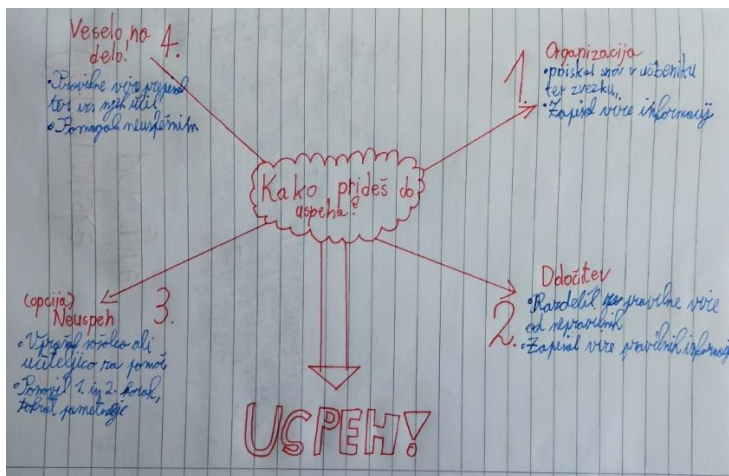 Kako prideš do
uspeha?
1.
Organizacija
• poiskal snov v učbeniku
ter zvezku,
• Zapisal vire informacij
2.
Določitev
• Razdelil pravilne vire
od nepravilnih
• Zapisal vire pravilnih informacij
3.
(opcija)
Neuspeh
• Vprašal sošolco ali
učiteljico za pomoč
• Ponovil 1. in 2. korak,
tokrat pametneje
4.
Veselo na
delo!
• Pravilne vire prepisal
ter iz njih učil
• Pomagal neuspešnim
USPEH!